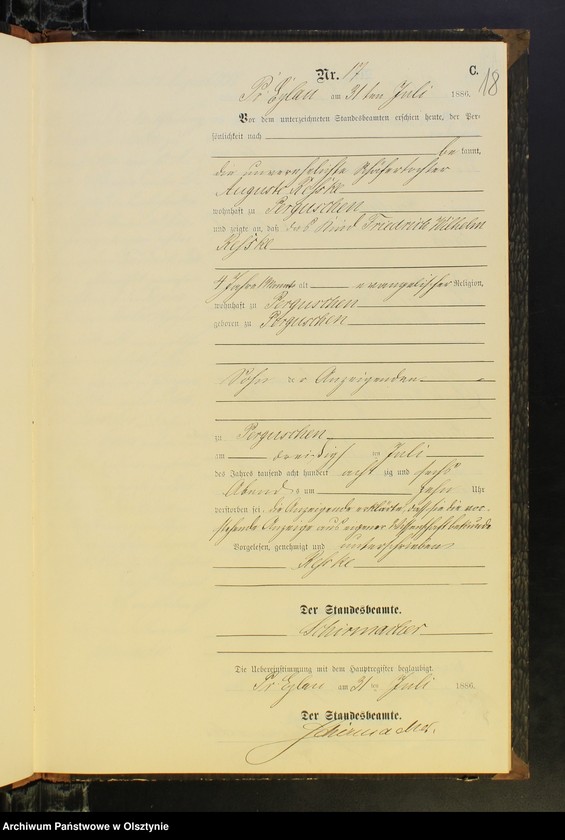 Nr. 17 C. 18
Pr Eylau am 31 ten Juli 1886.
Vor dem unterzeichneten Standesbeamten erschien heute, der Per-
sönlichkeit nach
be kannt,
die unverehelichte Schäfertochter
Auguste Reske
wohnhaft zu Perguschen
und zeigte an, daß das Kind Friedrich Wilhelm
Reske
4 Jahre 1 Monat alt evangelischer Religion,
wohnhaft zu Perguschen
geboren zu Perguschen
Sohn der Anzeigenden
zu Perguschen
am dreißigsten Juli
des Jahres tausend acht hundert acht zig und sechs
Abends um zehn Uhr
verstorben sei. die Anzeigende erklärte, daß sie die vor-
stehende Anzeige aus eigener Wissenschaft bekunde
Vorgelesen, genehmigt und unterschrieben
Reske
Der Standesbeamte.
Schirmacher
Die Uebereinstimmung mit dem Hauptregister beglaubigt.
Pr Eylau am 31 ten Juli 1886.
Der Standesbeamte.
Schirmacher.
Archiwum Państwowe w Olsztynie